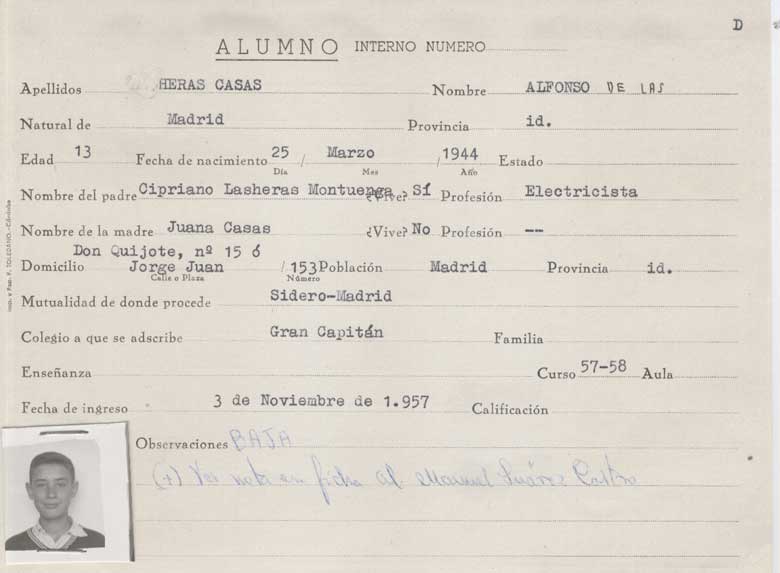 D
ALUMNO INTERNO NUMERO
Apellidos HERAS CASAS Nombre ALFONSO DE LAS
Natural de Madrid Provincia id.
Edad 13 Fecha de nacimiento 25 / Marzo / 1944 Estado
Día Mes Año
Nombre del padre Cipriano Lasheras Montuenga ¿Vive? Sí Profesión Electricista
Nombre de la madre Juana Casas ¿Vive? No Profesión --
Don Quijote, nº 15 ó
Domicilio Jorge Juan / 153 Población Madrid Provincia id.
Calle o Plaza Número
Mutualidad de donde procede Sidero-Madrid
Colegio a que se adscribe Gran Capitán Familia
Enseñanza Curso 57-58 Aula
Fecha de ingreso 3 de Noviembre de 1.957 Calificación
Observaciones BAJA
(+) Ver nota en ficha al Manuel Suárez Castro
Imp. y Pap. F. TOLEDANO.-Córdoba